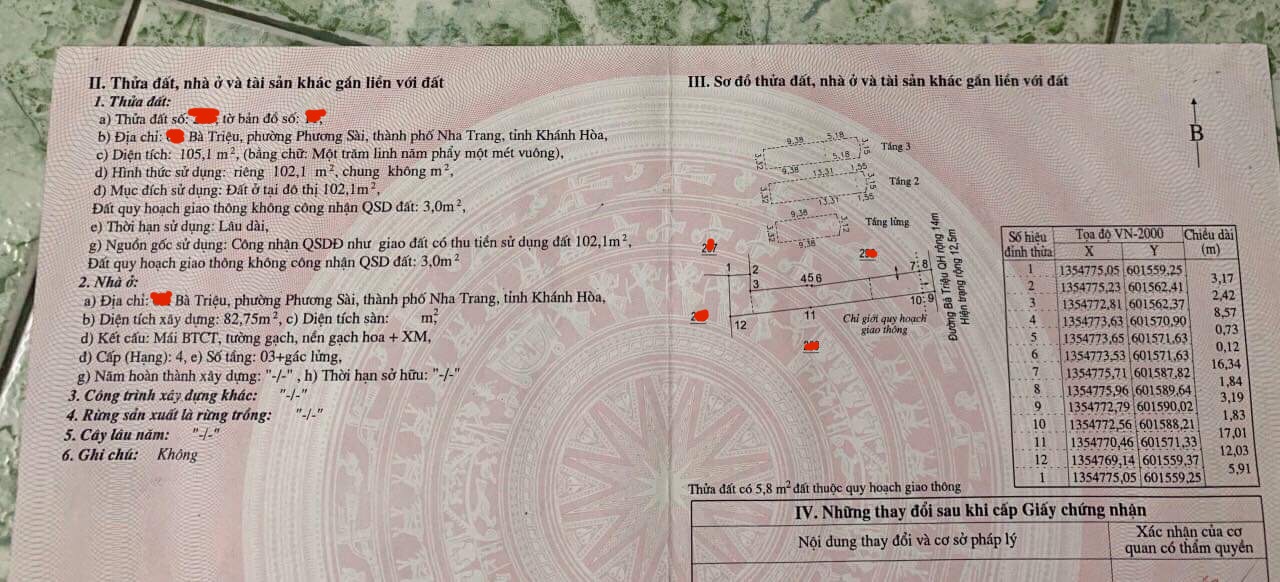 II. Thửa đất, nhà ở và tài sản khác gắn liền với đất
1. Thửa đất:
a) Thửa đất số: , tờ bản đồ số: ,
b) Địa chỉ: Bà Triệu, phường Phương Sài, thành phố Nha Trang, tỉnh Khánh Hòa,
c) Diện tích: 105,1 m², (bằng chữ: Một trăm linh năm phẩy một mét vuông),
d) Hình thức sử dụng: riêng 102,1 m², chung không m²,
đ) Mục đích sử dụng: Đất ở tại đô thị 102,1m²,
Đất quy hoạch giao thông không công nhận QSD đất: 3,0m²,
e) Thời hạn sử dụng: Lâu dài,
g) Nguồn gốc sử dụng: Công nhận QSDĐ như giao đất có thu tiền sử dụng đất 102,1m²,
Đất quy hoạch giao thông không công nhận QSD đất: 3,0m²
2. Nhà ở:
a) Địa chỉ: Bà Triệu, phường Phương Sài, thành phố Nha Trang, tỉnh Khánh Hòa,
b) Diện tích xây dựng: 82,75m², c) Diện tích sàn: m²,
d) Kết cấu: Mái BTCT, tường gạch, nền gạch hoa + XM,
đ) Cấp (Hạng): 4, e) Số tầng: 03+gác lửng,
g) Năm hoàn thành xây dựng: "-/-" , h) Thời hạn sở hữu: "-/-"
3. Công trình xây dựng khác: "-/-"
4. Rừng sản xuất là rừng trồng: "-/-"
5. Cây lâu năm: "-/-"
6. Ghi chú: Không
III. Sơ đồ thửa đất, nhà ở và tài sản khác gắn liền với đất
B
9,38 5,18
3,32 3,15 Tầng 3
9,38 5,18
13,31 1,55
3,32 3,15 Tầng 2
13,31 1,55
9,38
3,32 3,12 Tầng lửng
9,38
1 2
3 4 5 6 7 8
12 11 10 9
Chỉ giới quy hoạch
giao thông
Đường Bà Triệu QH rộng 14m
Hiện trạng rộng 12,5m
Số hiệu đỉnh thửa Tọa độ VN-2000 Chiều dài (m)
X Y
1 1354775,05 601559,25
3,17
2 1354775,23 601562,41
2,42
3 1354772,81 601562,37
8,57
4 1354773,63 601570,90
0,73
5 1354773,65 601571,63
0,12
6 1354773,53 601571,63
16,34
7 1354775,71 601587,82
1,84
8 1354775,96 601589,64
3,19
9 1354772,79 601590,02
1,83
10 1354772,56 601588,21
17,01
11 1354770,46 601571,33
12,03
12 1354769,14 601559,37
5,91
1 1354775,05 601559,25
Thửa đất có 5,8 m² đất thuộc quy hoạch giao thông
IV. Những thay đổi sau khi cấp Giấy chứng nhận
Nội dung thay đổi và cơ sở pháp lý
Xác nhận của cơ
quan có thẩm quyền